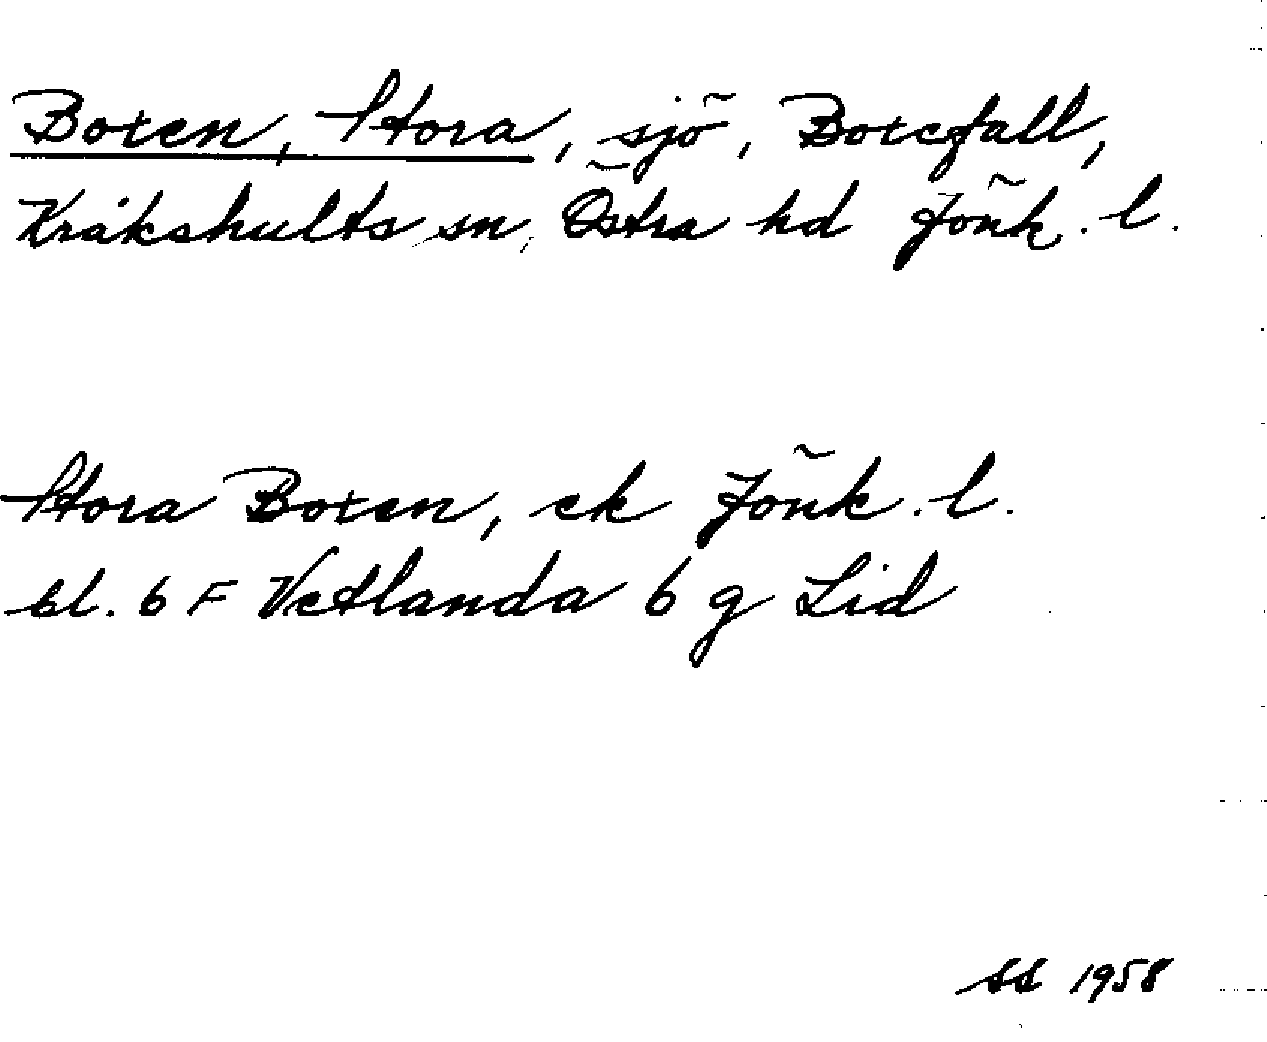 Boten, Stora, sjö, Botefall,
Kråkshults sn, Östra hd Jönk. l.
Stora Boten, ek Jönk. l.
bl. 6 F Vetlanda 6 g Lid
SS 1958